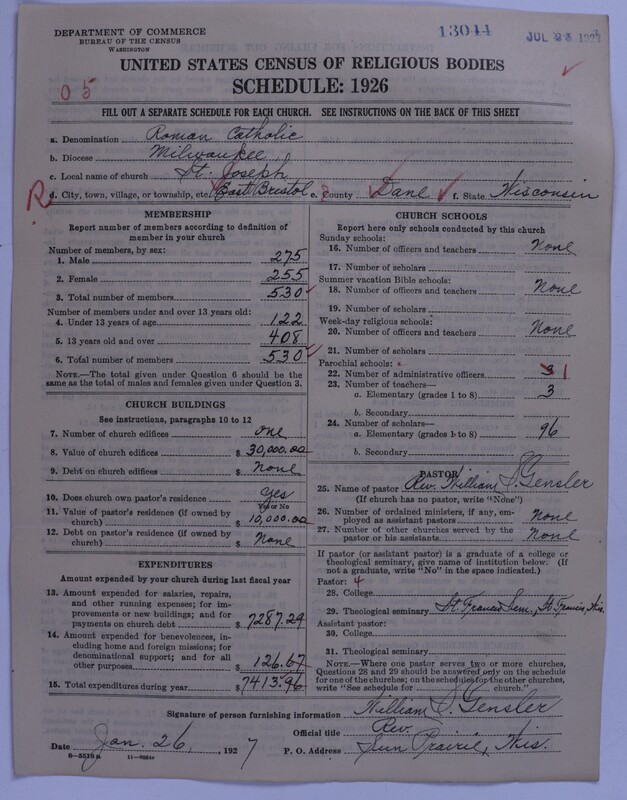 DEPARTMENT OF COMMERCE
BUREAU OF THE CENSUS
WASHINGTON
13044
UNITED STATES CENSUS OF RELIGIOUS BODIES
SCHEDULE: 1926
05
FILL OUT A SEPARATE SCHEDULE FOR EACH CHURCH. SEE INSTRUCTIONS ON THE BACK OF THIS SHEET
a. Denomination Roman Catholic
b. Diocese Milwaukee
c. Local name of church St. Joseph
R
d. City, town, village, or township, etc. East Bristol e. County Dane f. State Wisconsin
MEMBERSHIP
Report number of members according to definition of
member in your church
Number of members, by sex:
1. Male 275
2. Female 255
3. Total number of members 530
Number of members under and over 13 years old:
4. Under 13 years of age 122
5. 13 years old and over 408
6. Total number of members 530
NOTE.—The total given under Question 6 should be
same as the total of males and females given under Question 3.
CHURCH BUILDINGS
See instructions, paragraphs 10 to 12
7. Number of church edifices one
8. Value of church edifices $ 30,000.00
9. Debt on church edifices $ None
10. Does church own pastor's residence Yes
Yes or No
11. Value of pastor's residence (if owned by
church) $ 10,000.00
12. Debt on pastor's residence (if owned by
church) $ None
EXPENDITURES
Amount expended by your church during last fiscal year
13. Amount expended for salaries, repairs,
and other running expenses; for im-
provements or new buildings; and for
payments on church debt $ 7287.29
14. Amount expended for benevolences, in-
cluding home and foreign missions; for
denominational support; and for all
other purposes $ 126.67
15. Total expenditures during year $ 7413.96
CHURCH SCHOOLS
Report here only schools conducted by this church
Sunday schools:
16. Number of officers and teachers None
17. Number of scholars
Summer vacation Bible schools:
18. Number of officers and teachers None
19. Number of scholars
Week-day religious schools:
20. Number of officers and teachers None
21. Number of scholars
Parochial schools:
22. Number of administrative officers 3 1
23. Number of teachers—
a. Elementary (grades 1 to 8) 3
b. Secondary
24. Number of scholars—
a. Elementary (grades 1 to 8) 96
b. Secondary
PASTOR
25. Name of pastor Rev. William S. Gensler
(If church has no pastor, write "None")
26. Number of ordained ministers, if any, em-
ployed as assistant pastors None
27. Number of other churches served by the
pastor or his assistants None
If pastor (or assistant pastor) is a graduate of a college or
theological seminary, give name of institution below: (If
not a graduate, write "No" in the space indicated.)
Pastor: 4
28. College
29. Theological seminary St. Francis Sem., St. Francis, Wis.
Assistant pastor:
30. College
31. Theological seminary
NOTE.—Where one pastor serves two or more churches,
Questions 28 and 29 should be answered only on the schedule
for one of the churches; on the schedules for the other churches,
write "See schedule for church."
Signature of person furnishing information William S. Gensler
Official title Rev.
Date Jan. 26, 1927 P. O. Address Sun Prairie, Wis.